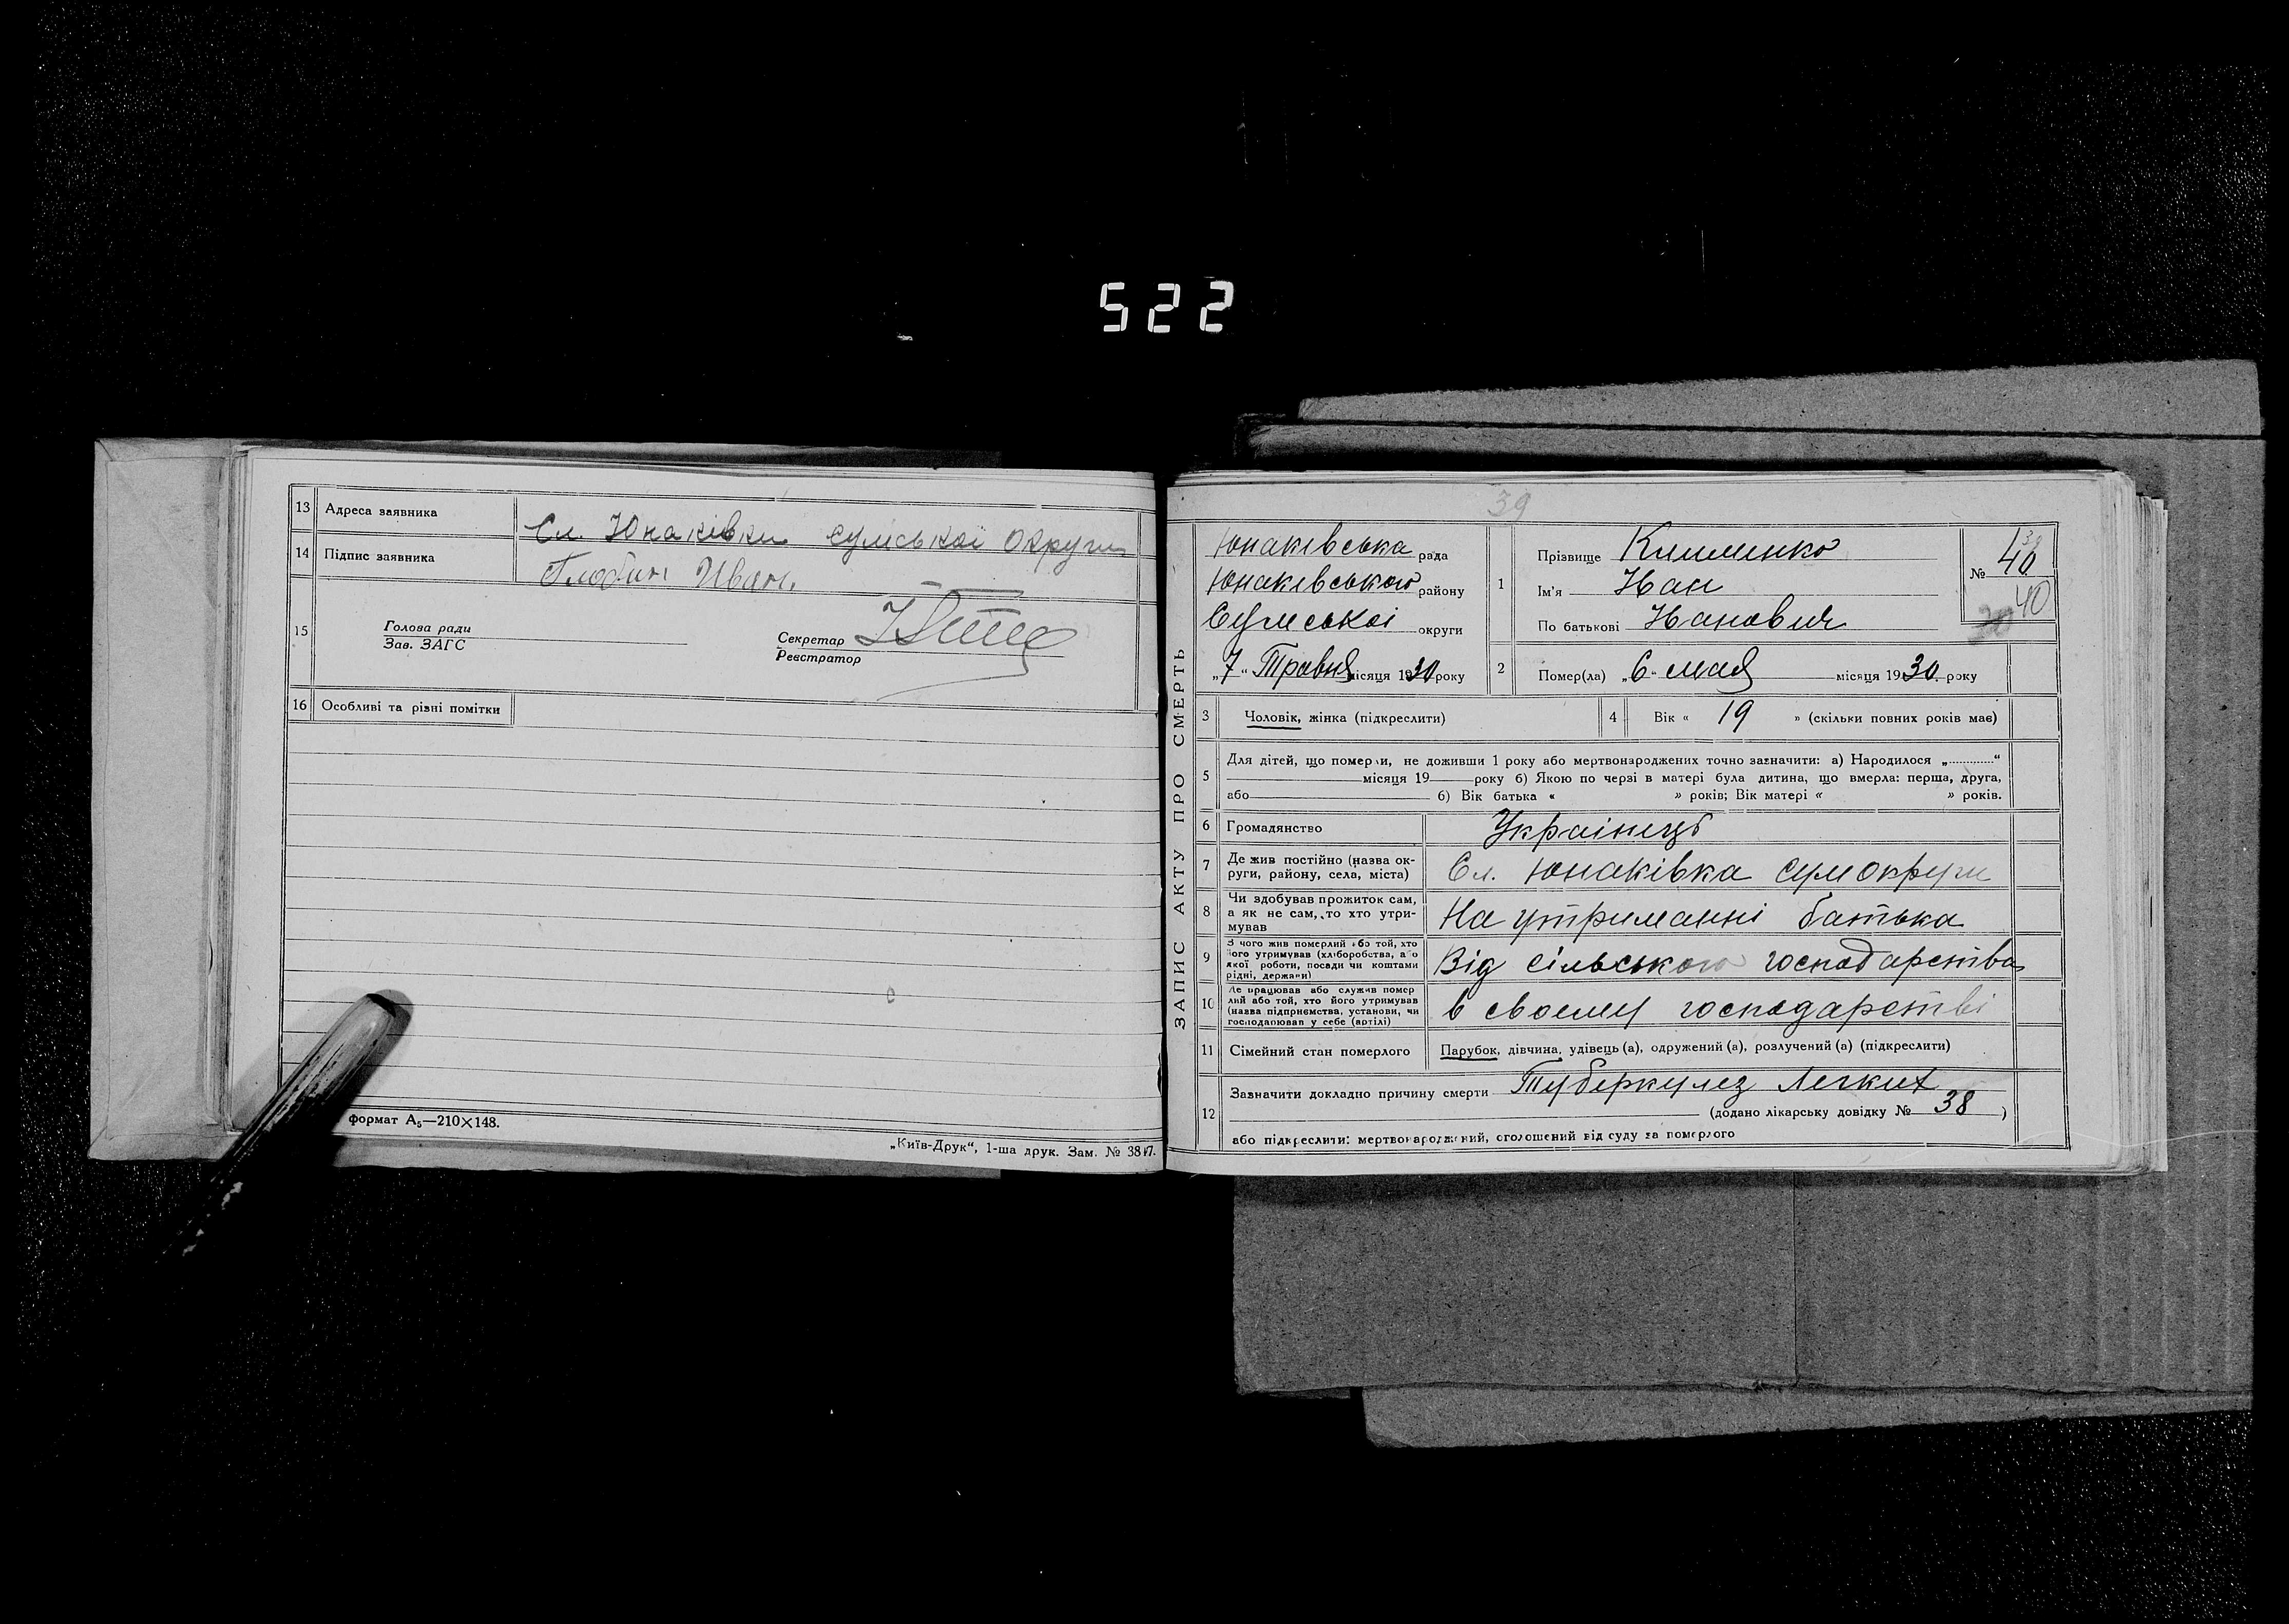 522
13 Адреса заявника
Сл. Юнаківки сумської округи
14 Підпис заявника
Иван.
15
Голова ради
Зав. ЗАГС
Секретар
Реєстратор
16 Особливі та різні помітки
формат А₅—210×148.
„Київ-Друк“, 1-ша друк. Зам. № 3847.
39
ЗАПИС АКТУ ПРО СМЕРТЬ
Юнаківська рада
Юнаківського району
Сумської округи
„7“ Травня місяця 1930 року
1
Прізвище Клименко
Ім'я Иван
По батькові Иванович
№ 40
39
40
2 Помер(ла) „6“ мая місяця 1930 року
3 Чоловік, жінка (підкреслити)
4 Вік « 19 » (скільки повних років має)
5 Для дітей, що померли, не доживши 1 року або мертвонароджених точно зазначити: а) Народилося „............“
місяця 19 року б) Якою по черзі в матері була дитина, що вмерла: перша, друга,
або б) Вік батька « » років; Вік матері « » років.
6 Громадянство Українець
7 Де жив постійно (назва ок-
руги, району, села, міста)
Сл. Юнаківка сумокруги
8 Чи здобував прожиток сам,
а як не сам, то хто утри-
мував
На утриманні батька
9 З чого жив померлий або той, хто
його утримував (хліборобства, або
якої роботи, посади чи коштами
рідні, держави)
Від сільського господарства
10 Де працював або служив помер
лий або той, хто його утримував
(назва підприємства, установи, чи
господарював у себе (артілі)
в своєму господарстві
11 Сімейний стан померлого Парубок, дівчина, удівець (а), одружений (а), розлучений (а) (підкреслити)
12 Зазначити докладно причину смерти Туберкулез Легких
(додано лікарську довідку № 38 )
або підкреслити: мертвонароджений, оголошений від суду за померлого